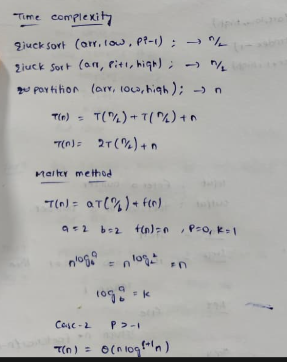 Time complexity
Quick sort (arr, low, Pi-1) ; → n/2
Quick sort (arr, Pi+1, high) ; → n/2
partition (arr, low, high) ; → n
T(n) = T(n/2) + T(n/2) + n
T(n) = 2T(n/2) + n
Master method
T(n) = aT(n/b) + f(n)
a = 2 b = 2 f(n) = n , P=0, k=1
n^log_b^a = n^log_2^2 = n
log_b^a = k
Case-2 P > -1
T(n) = Θ(n log^(P+1) n)